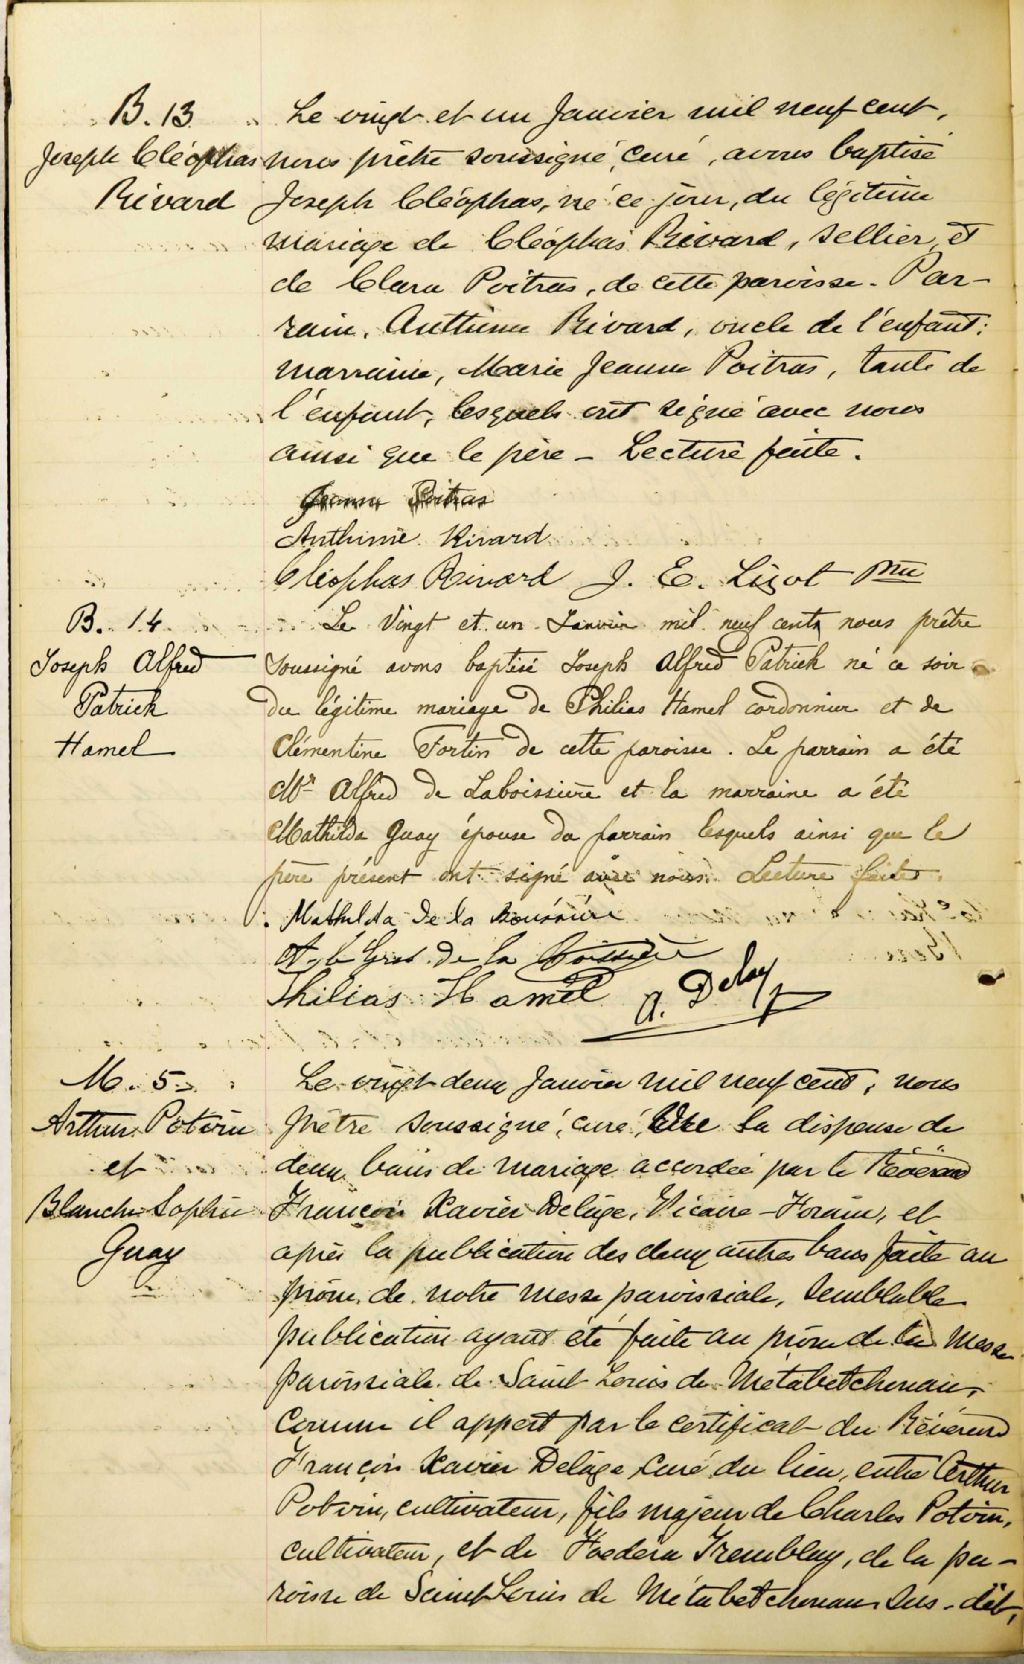 B. 13
Joseph Cléophas
Rivard
Le vingt et un Janvier mil neuf cent,
nous prêtre soussigné, curé, avons baptisé
Joseph Cléophas, né ce jour, du légitime
mariage de Cléophas Rivard, sellier, et
de Clara Poitras, de cette paroisse. Par-
rain, Anthime Rivard, oncle de l'enfant;
marraine, Marie Jeanne Poitras, tante de
l'enfant, lesquels ont signé avec nous
ainsi que le père - Lecture faite.
Jeanne Poitras
Anthime Rivard
Cléophas Rivard J. E. Lizot Ptre
B. 14
Joseph Alfred
Patrick
Hamel
Le Vingt et un Janvier mil neuf cent, nous prêtre
soussigné avons baptisé Joseph Alfred Patrick né ce soir
du légitime mariage de Philias Hamel cordonnier et de
Clémentine Fortin de cette paroisse. Le parrain a été
Mr Alfred de Laboissière et la marraine a été
Mathilda Guay épouse du parrain lesquels ainsi que le
père présent ont signé avec nous. Lecture faite.
Mathilda de la Boissière
de la Boissière
Philias Hamel A. Delay
M. 5
Arthur Potvin
et
Blanche Sophie
Guay
Le vingt deux Janvier mil neuf cent, nous
prêtre soussigné, curé, Vu la dispense de
deux bans de mariage accordée par le Révérend
François Xavier Delâge, Vicaire-Forain, et
après la publication des deux autres bans faite au
prône de notre messe paroissiale, semblable
publication ayant été faite au prône de la Messe
paroissiale de Saint Louis de Métabetchouan,
comme il appert par le certificat du Révérend
François Xavier Delâge curé du lieu, entre Arthur
Potvin, cultivateur, fils majeur de Charles Potvin,
cultivateur, et de Tremblay, de la pa-
roisse de Saint Louis de Métabetchouan sus-dit,